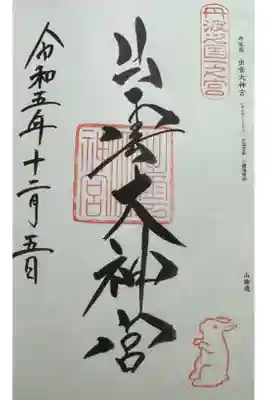 丹波国一之宮
丹波国 出雲大神宮
山陰道
出雲大神宮
令和五年十二月五日